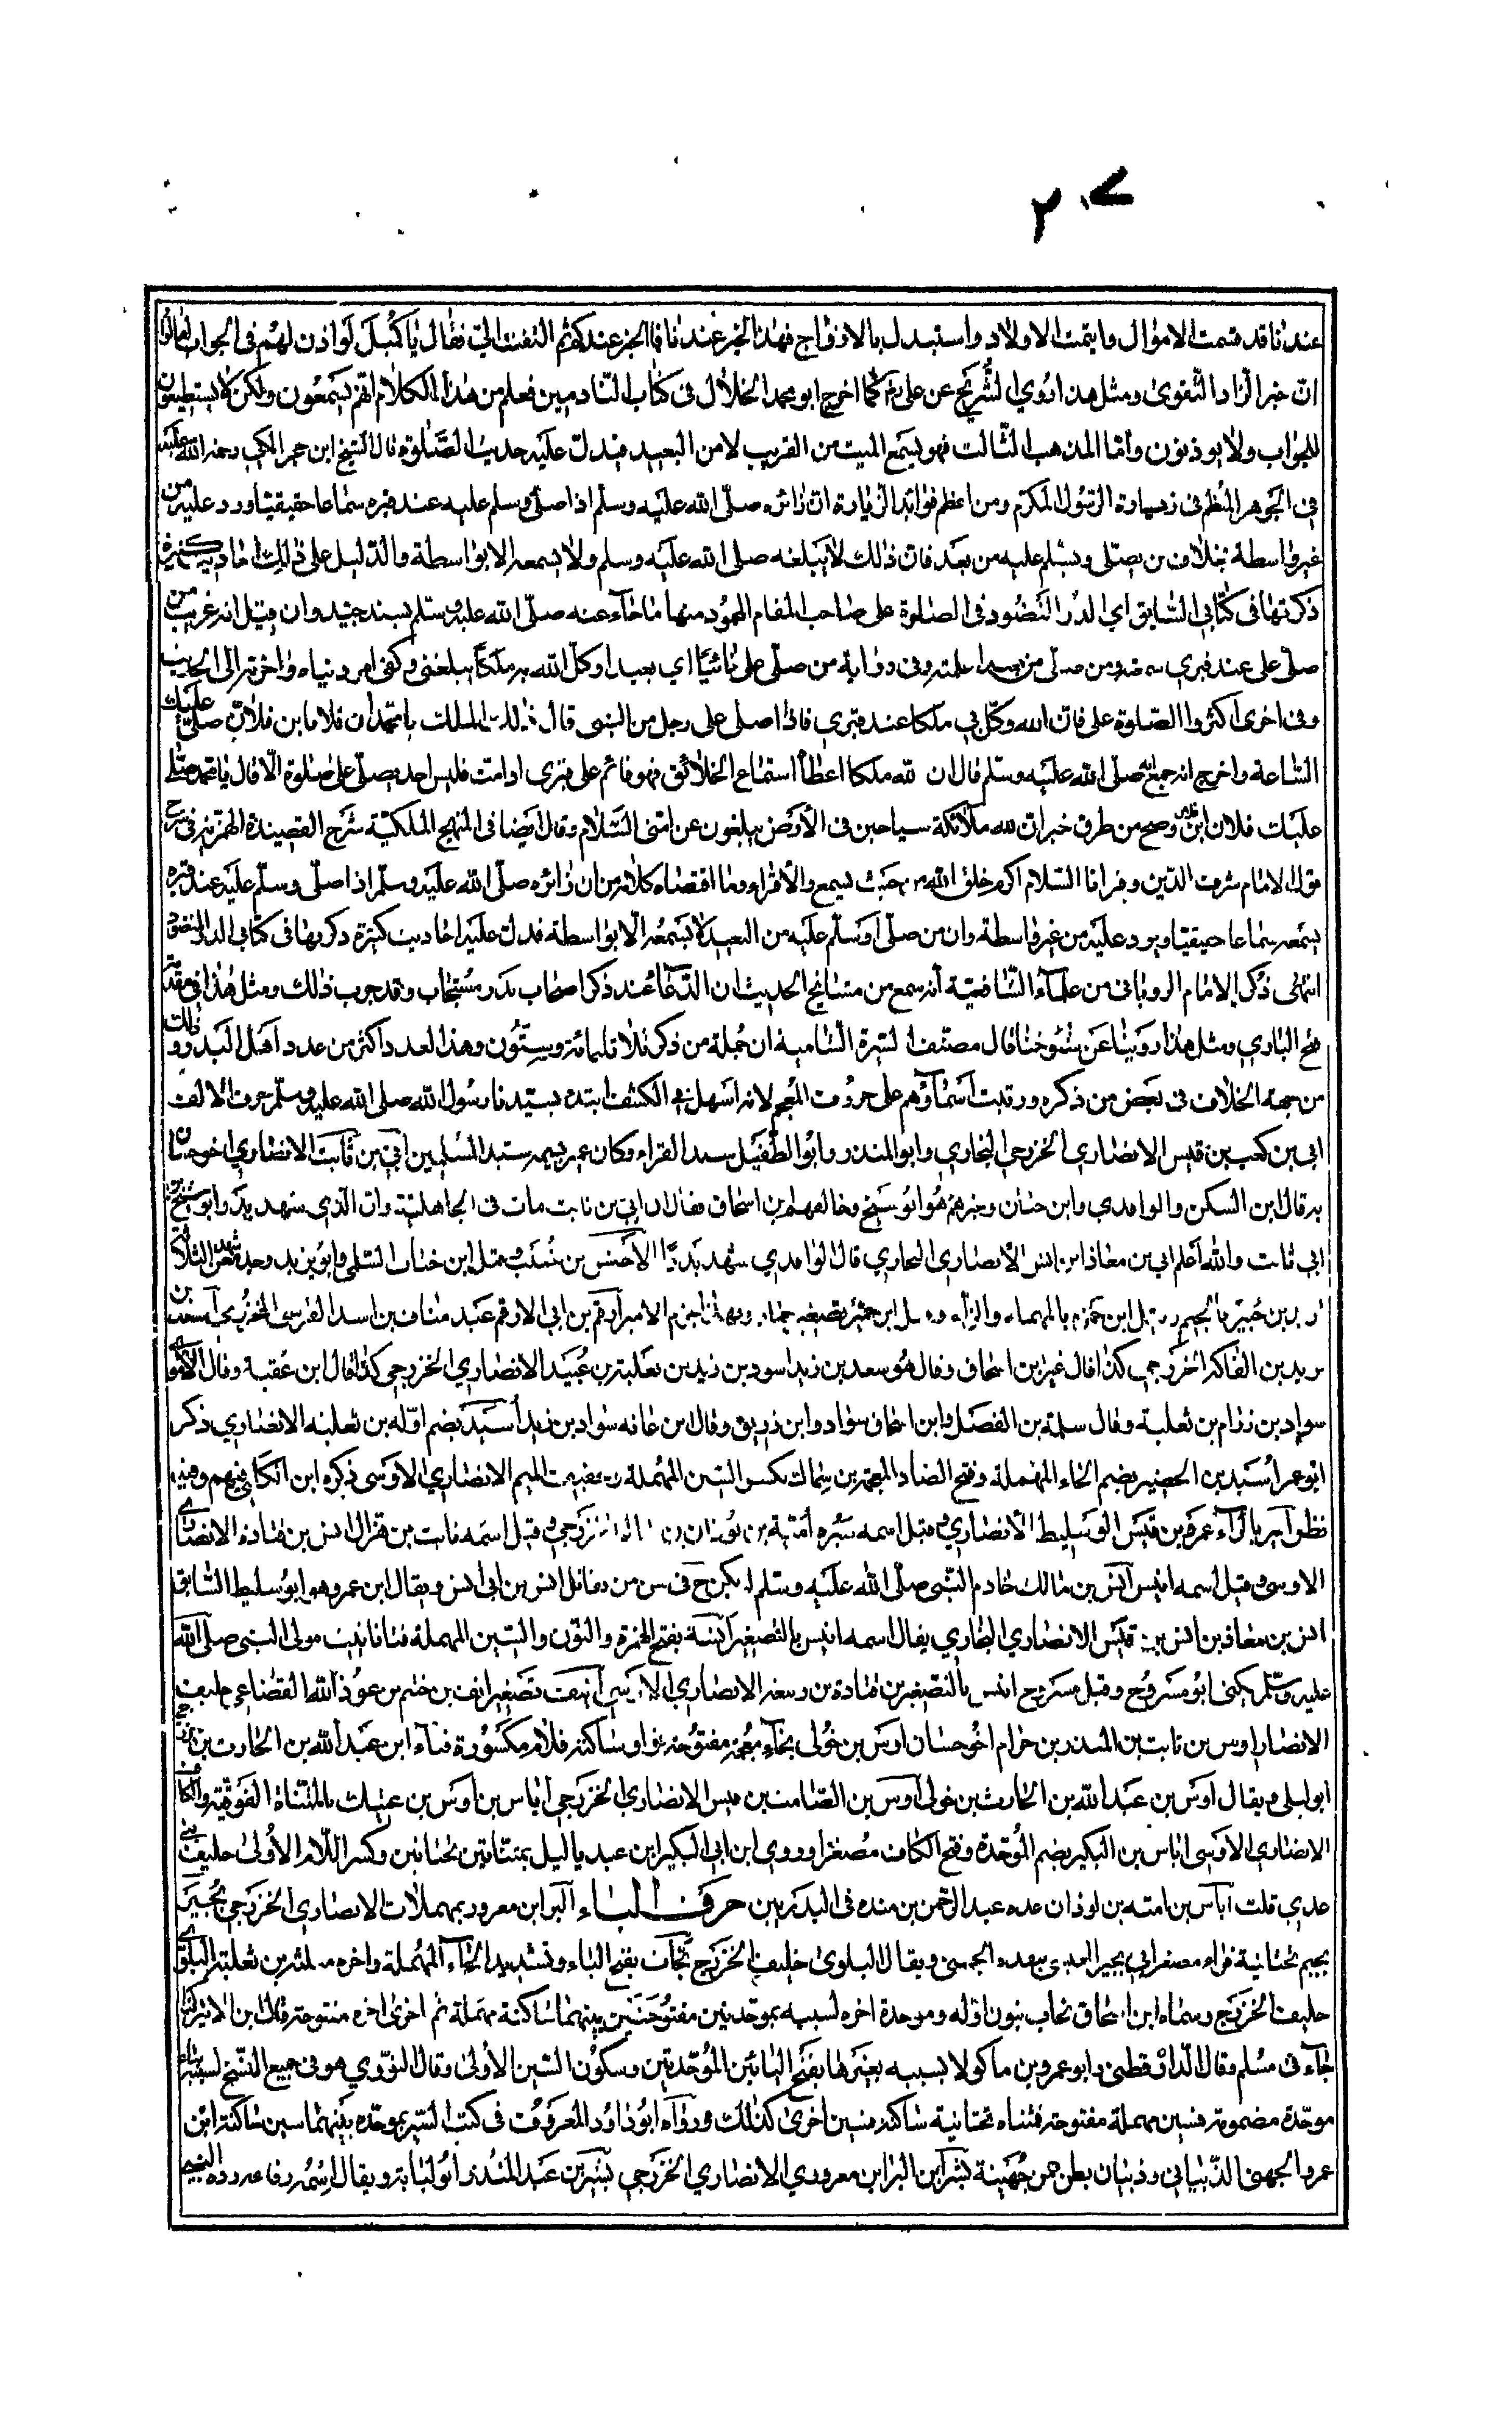 ٢٠٧
عندنا قد قسمت الاموال وايتمت الاولاد واستبدل بالازواج فهذا الخبر عندنا فما الخبر عندكم ثم التفت الي فقال يا كميل لو اذن لهم في الجواب لقالوا
ان خير الزاد التقوى ومثل هذا روي الشريح عن علي رض كما اخرج ابو محمد الخلال في كتاب النادمين فعلم من هذا الكلام انهم يسمعون ولكن لا يستطيعون
الجواب ولا يوذنون واما المذهب الثالث فهو يسمع الميت من القريب لا من البعيد فيدل عليه حديث الصلوة قال الشيخ ابن حجر المكي رحمة الله عليه
في الجوهر المنظم في زيارة الرسول المكرم ومن اعظم فوائد الزيارة ان زائره صلى الله عليه وسلم اذا صلى وسلم عليه عند قبره سماعا حقيقيا ورد عليه من
غير واسطة بخلاف من يصلي ويسلم عليه من بعد فان ذالك لا يبلغه صلى الله عليه وسلم ولا يسمعه الا بواسطة والدليل على ذالك احاديث كثيرة
ذكرتها في كتابي السابق اي الدر المنضود في الصلوة على صاحب المقام المحمود منها ما جاء عنه صلى الله عليه وسلم بسند جيد وان قيل انه غريب من
صلى علي عند قبري سمعته ومن صلى من بعيد اعلمته وفي رواية من صلى علي نائيا اي بعيدا وكل الله به ملكا يبلغني وكفى امر دنياه واخرته الى الحديث
وفي اخرى اكثروا الصلوة علي فان الله وكل بي ملكا عند قبري فاذا صلى علي رجل من امتي قال ذلك الملك يا محمد ان فلانا بن فلان صلى عليك
الساعة واخرج انه صلى الله عليه وسلم قال ان لله ملكا اعطاه استماع الخلائق فهو قائم على قبري اذا مت فليس احد يصلي علي صلوة الا قال يا محمد صلى
عليك فلان ابن فلان وصح من طرق خبر ان لله ملائكة سياحين في الارض يبلغون عن امتي السلام وقال ايضا في المنهج الملكية شرح القصيدة الهمزية في شرح
قول الامام شرف الدين وقرانا السلام اكرم خلق الله من حيث يسمع الاقراء وما اقتضاه كلامه من ان زائره صلى الله عليه وسلم اذا صلى وسلم عليه عند قبره
يسمعه سماعا حقيقيا ويرد عليه من غير واسطة وان من صلى او سلم عليه من البعيد لا يسمعه الا بواسطة فدل عليه احاديث كثيرة ذكرتها في كتابي الدر المنضود
انتهى ذكر الامام الروياني من علماء الشافعية انه سمع من مشايخ الحديث ان الدعاء عند ذكر اصحاب بدر مستجاب وقد جرب ذلك ومثل هذا في مقدمة
فتح الباري ومثل هذا روينا عن شيوخنا قال مصنف السيرة الشامية ان جملة من ذكر ثلاثمائة وستون وهذا العدد اكثر من عدد اهل البدر وذلك
من جهة الخلاف في بعض من ذكره ورتبت اسماؤهم على حروف المعجم لانه اسهل في الكشف ابتدء بسيدنا رسول الله صلى الله عليه وسلم حرف الالف
ابي بن كعب بن قيس الانصاري الخزرجي البخاري وابو المنذر وابو الطفيل سيد القراء وكان عمر يسميه سيد المسلمين ابي بن ثابت الانصاري اخو حسان
به قال ابن السكن والواقدي وابن حبان وغيرهم هو ابو شيخ وخالفهم ابن اسحاق فقال ان ابي بن ثابت مات في الجاهلية وان الذي شهد بدر وابو شيخ بن
ابي ثابت والله اعلم ابي بن معاذ ابن انس الانصاري البخاري قال الواقدي شهد بدرا الاخنس بن ابن خباب السلمي وابو يزيد وجده معن الثلاثة
بن حبير بالجيم وقيل ابن حمزة بالمهملة والزاء وقيل ابن حمير بتصغير حمار وبهذا جزم الامير ارقم بن ابي الارقم عبد مناف بن اسد القرشي المخزومي اسعد بن
يزيد بن الفاكه الخزرجي كذا قال غير ابن اسحاق وقال هو سعد بن زيد اسود بن زيد بن ثعلبة بن عبيد الانصاري الخزرجي كذا قال ابن عقبة وقال الاموي
سواد بن رزام بن ثعلبة وقال سلمة بن الفضل وابن اسحاق سواد وابن زريق وقال بن عائه سواد بن زيد اسيد بضم اوله بن ثعلبة الانصاري ذكره
ابو عمر اسيد بن الحضير بضم الحاء المهملة وفتح الضاد المعجمة بن سماك بكسر السين المهملة وتخفيف الميم الانصاري الاوسي ذكره ابن الكلبي فيهم وفيه
نظر اسير بالراء عمرو بن قيس ابو سليط الانصاري وقيل اسمه سبره امية بن لوذان بن الخزرجي وقيل اسمه ثابت بن هزال انس بن قتادة الانصاري
الاوسي وقيل اسمه انيس انس بن مالك خادم النبي صلى الله عليه وسلم لم يكن ح في سن من يقاتل انس بن ابي انس ويقال ابن عمرو هو ابو سليط السابق
انس بن معاذ بن انس بن قيس الانصاري البخاري يقال اسمه انيس بالتصغير انسة بفتح الهمزة والنون والسين المهملة فتاء تانيث مولى النبي صلى الله
عليه وسلم يكنى ابو مسروح وقيل مسروح انيس بالتصغير بن قتادة بن ربيعة الانصاري الاوسي انيف تصغير انف بن خثم من عوذ الله القضاعي حليف
الانصار اوس بن ثابت بن المنذر بن حرام اخو حسان اوس بن خولى بخاء معجمة مفتوحة فواو ساكنة فلام مكسورة فياء ابن عبد الله بن الحارث بن خزرجي
ابو ليلى ويقال اوس بن عبد الله بن الحارث بن خولى اوس بن الصامت بن قيس الانصاري الخزرجي اياس بن اوس بن عتيك بالمثناة الفوقية والكاف
الانصاري الاوسي اياس بن البكير بضم الموحدة وفتح الكاف مصغرا وروي ابن ابي البكير ابن عبد ياليل بمثناتين تحتانين وكسر اللام الاولى حليف بني
عدي قلت اياس بن امية بن لوذان عده عبد الرحمن بن منده في البدريين حرف الباء البر ابن معرور بمهملات الانصاري الخزرجي بجير
بجيم تحتانية فراء مصغر ابي بجير العبسي ويقال البلوى حليف الخزرج بحاث بفتح الباء وتشديد الحاء المهملة واخره مثلثة بن ثعلبة البلوي
حليف الخزرج وسماه ابن اسحاق نحاب بنون اوله وموحدة اخره لسبسبه بموحدتين مفتوحتين بينهما ساكنة مهملة ثم اخرى اخره مفتوحة قال ابن الاثير كذا
جاء في مسلم وقال الدارقطني وابو عمرو بن ماكولا بسبسه بغيرها بفتح البائين الموحدتين وسكون السين الاولى وقال النووي هو في جميع النسخ بسيسة
موحدة مضمومة فسين مهملة مفتوحة فمثناه تحتانية ساكنة فسين اخرى كذلك ورواه ابو داود المعروف في كتب السير بموحدة بينهما سين ساكنة ابن
عمرو الجهني الذبياني وذبيان بطن من جهينة بشر ابن البرا ابن معرور دي الانصاري الخزرجي بشير بن عبد المنذر ابو لبابة ويقال اسمه رفاعة